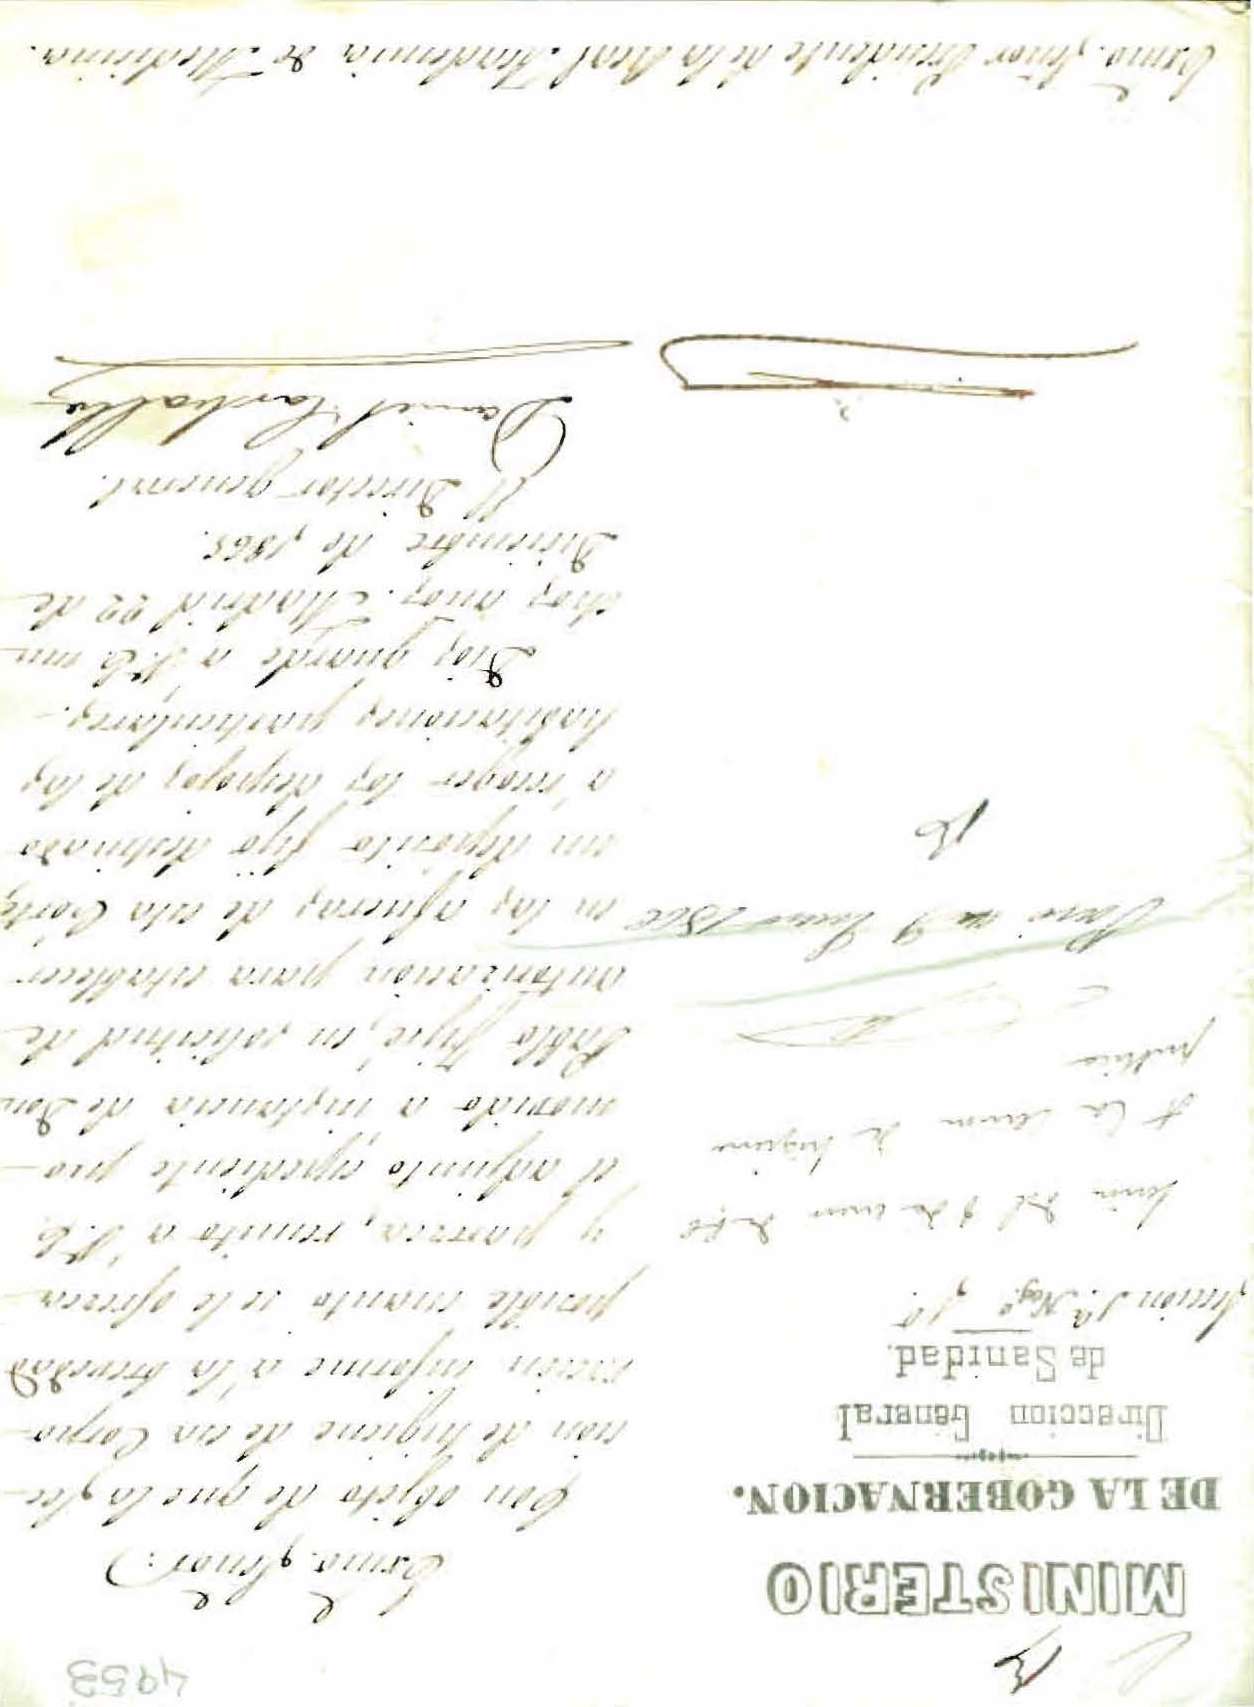 4953
13
MINISTERIO
DE LA GOBERNACION.
Direccion General
de Sanidad.
Seccion 1ª Nego 1º
Sesion del 9 de enero de 66
A la seccion de higiene
publica
9 Enero 1866
Excmo. Señor:
Con objeto de que la Sec-
cion de higiene de esa Corpo-
racion informe á la brevedad
posible cuanto se le ofrezca
y parezca, remito a V.E.
el adjunto espediente pro-
movido a instancia de Don
Pablo en solicitud de
autorizacion para establecer
en las afueras de esta Corte
un deposito fijo destinado
á recoger los despojos de las
habitaciones particulares.
Dios guarde a V.E. mu-
chos años. Madrid 22 de
Diciembre de 1865.
El Director general.
Daniel Carballo
Excmo. Señor Presidente de la Real Academia de Medicina.